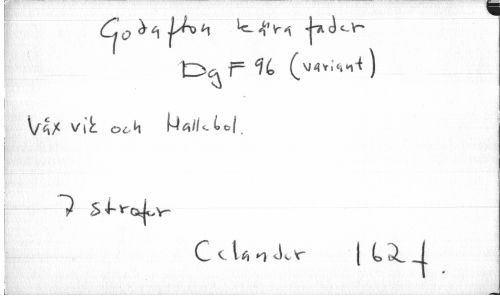 Godafton kära fader
DgF 96 (variant)
Växvik och Hallebol.
7 strofer
Celander 162 f.